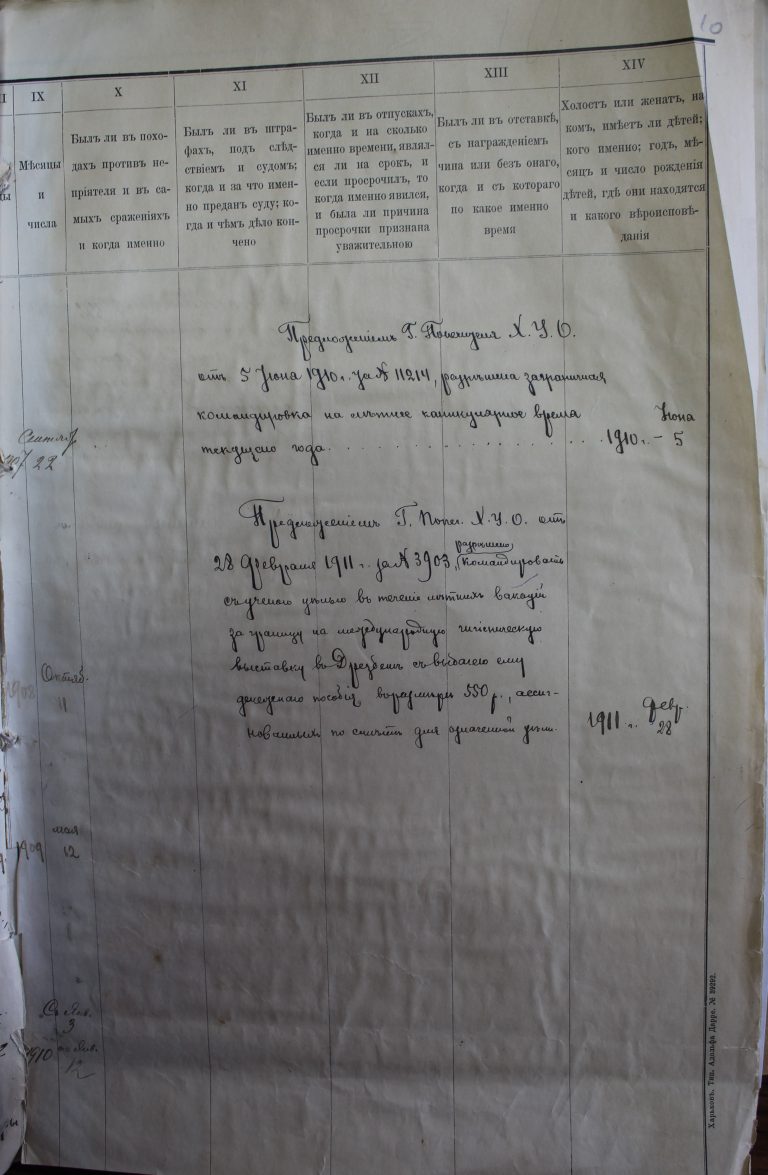 10
IX
X
XI
XII
XIII
XIV
Мѣсяцы
и
числа
Былъ ли въ похо-
дахъ противъ не-
пріятеля и въ са-
мыхъ сраженіяхъ
и когда именно
Былъ ли въ штра-
фахъ, подъ слѣд-
ствіемъ и судомъ;
когда и за что имен-
но преданъ суду; ко-
гда и чѣмъ дѣло кон-
чено
Былъ ли въ отпускахъ,
когда и на сколько
именно времени, являл-
ся ли на срокъ, и
если просрочилъ, то
когда именно явился,
и была ли причина
просрочки признана
уважительною
Былъ ли въ отставкѣ,
съ награжденіемъ
чина или безъ онаго,
когда и съ котораго
по какое именно
время
Холостъ или женатъ, на
комъ, имѣетъ ли дѣтей;
кого именно; годъ, мѣ-
сяцъ и число рожденія
дѣтей, гдѣ они находятся
и какого вѣроисповѣ-
данія
Предложеніемъ Г. Попечителя Х. У. О.
отъ 5 Іюна 1910 г. за № 11214, разрѣшена заграничная
командировка на лѣтнее каникулярное время
текущаго года. 1910 г. – Іюна 5
Сентяб.
22
Предложеніемъ Г. Попеч. Х. У. О. отъ
28 Февраля 1911 г. за № 3903, разрѣшено командировать
съ ученою цѣлью въ теченіе лѣтнихъ вакацій
за границу на международную гигіеническую
выставку въ Дрезденъ съ выдачею ему
денежнаго пособія въ размѣрѣ 550 р., ассиг-
нованныхъ по смѣтѣ для означенной цѣли.
1911 г. Февр.
28
1908 Октяб.
11
мая
1909 12
Съ Янв.
3
1910 по Янв.
12
Харьковъ. Тип. Адольфа Дарре. №